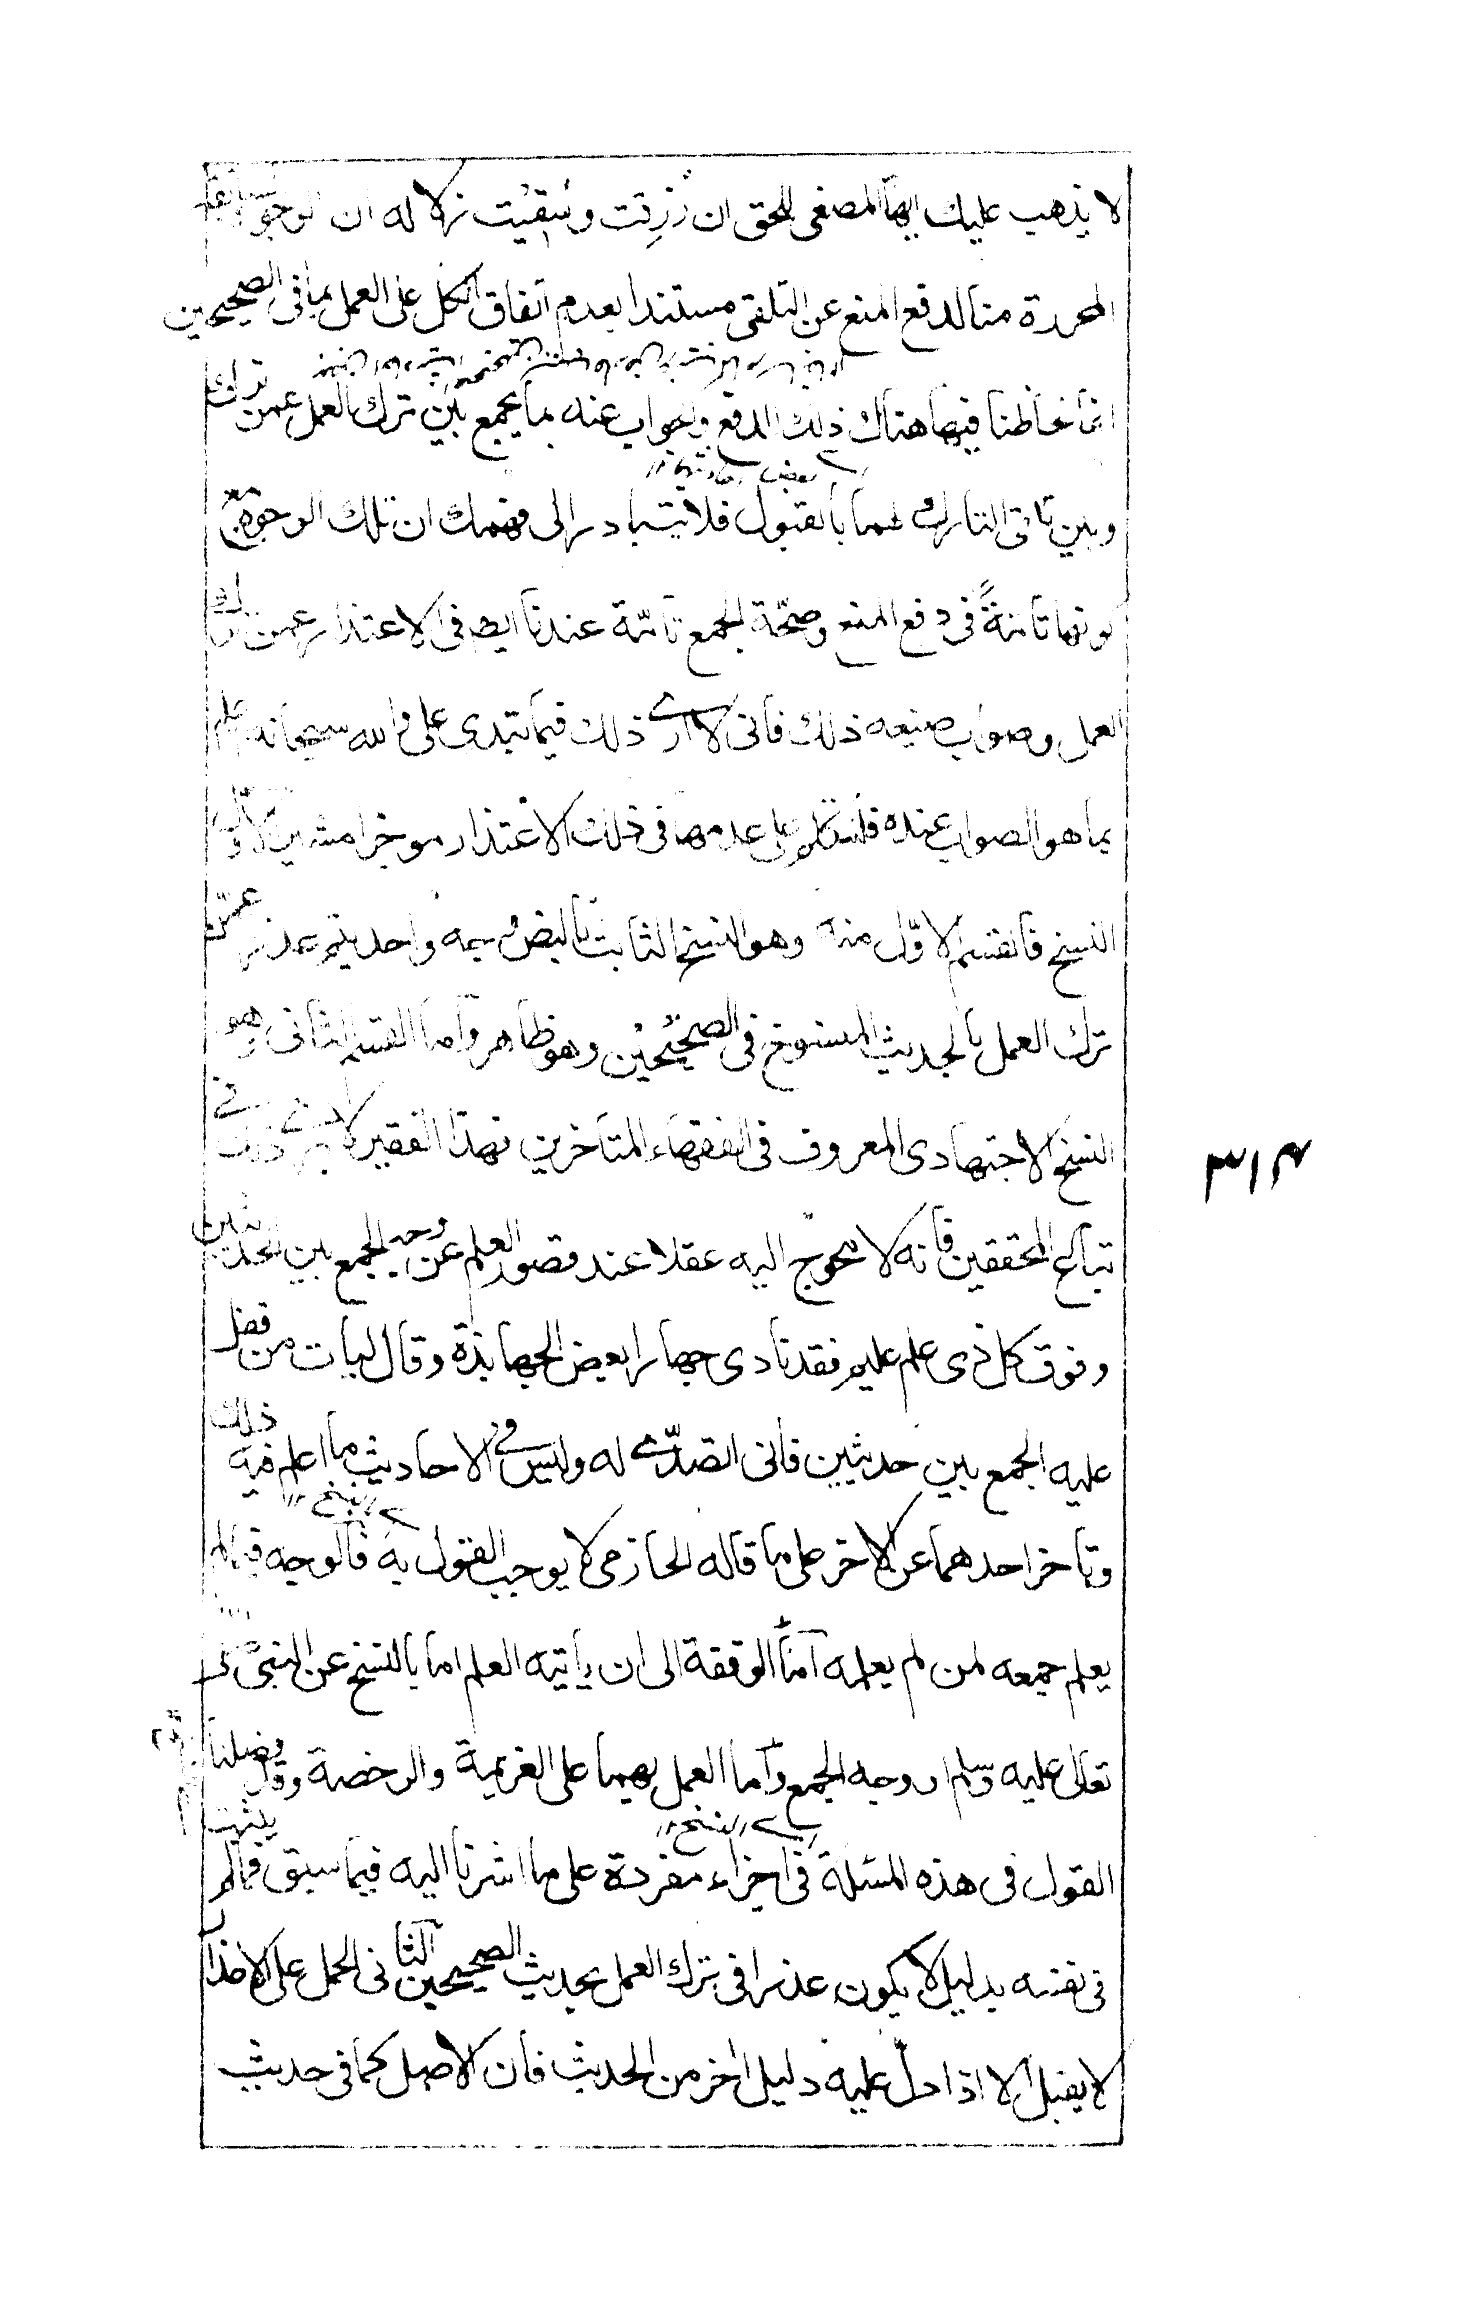 لا يذهب عليك ايها المصغى للحق ان رُزِقت وسُقِيت زلاله ان الوجوه السابقة
المحررة منا لدفع المنع عن التلقى مستندا بعدم اتفاق الكل على العمل بما فى الصحيحين
انما خاطبنا فيها هناك ذلك الدفع والجواب عنه بما يجمع بين ترك العمل عمن ترك
وبين تلقى التارك لهما بالقبول فلا يتبادر الى فهمك ان تلك الوجوه مع
كونها تامةً فى دفع المنع وصحّة الجمع تامّة عندنا ايضا فى الاعتذار عمن ترك
العمل وصواب صنيعه ذلك فانى لا ارى ذلك فيما تبدى على والله سبحانه اعلم
بما هو الصواب عنده فلنتكلم على عدمها فى ذلك الاعتذار موجزا مشيرا الاول
النسخ فالقسم الاوّل منه وهو النسخ الثابت بالنص وجهه واحد يتم عذر عمّن
ترك العمل بالحديث المنسوخ فى الصحيحين وهو ظاهر واما القسم الثانى وهو
النسخ الاجتهادى المعروف فى الفقهاء المتأخرين فهذا الفقير لا يرى ذلك فى
تباع المحققين فانه لا محوج اليه عقلا عند قصور العلم عن وجه الجمع بين الحديثين
وفوق كل ذى علم عليم فقد نادى جهارا بعض الجهابذة وقال ليأت من فضل
عليه الجمع بين حديثين فانى اتصدّى له وليس فى الاحاديث ما اعلم فيه ذلك
اى النسخ ١٢
وتأخر احدهما عن الاخر على ما قاله الحازمى لا يوجب القول به فالوجه فيما لم
يعلم جمعه لمن لم يعلمه امّا الوقفة الى ان يأتيه العلم اما بالنسخ عن النبى صلى
تعالى عليه وسلم او وجه الجمع وأما العمل بهما على العزيمة والرخصة وقد فصلنا
اى النسخ ١٢
القول فى هذه المسئلة فى اجزاء مفردة على ما اشرنا اليه فيما سبق فما لم يثبت
فى نفسه بدليل لا يكون عذرا فى ترك العمل بحديث الصحيحين الثانى الحمل على الاخذ
لا يقبل الا اذا دلّ عليه دليل اخر من الحديث فان الاصل كما فى حديث
٣١٤